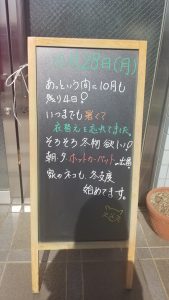 10月28日(月)
あっという間に10月も
残り4日!
いつまでも暑くて
衣替えを忘れてました。
そろそろ冬物欲しい!
朝・夕ホットカーペット出番
のネコも、冬支度
始めてます。